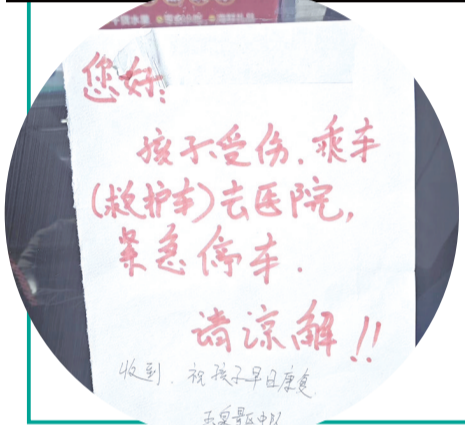 您好:
孩子受伤.乘车
(救护车)去医院,
紧急停车.
请凉解!!
收到.祝孩子早日康复